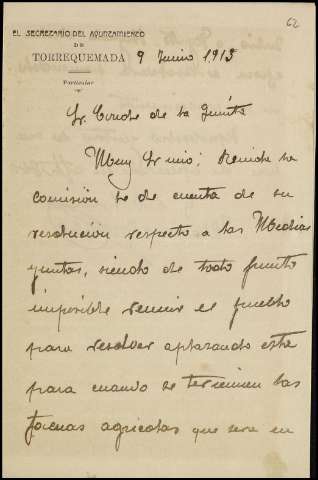 62
EL SECRETARIO DEL AYUNTAMIENTO
DE
TORREQUEMADA
Particular
9 Junio 1913
Sr. Conde de la Quinta
Muy Sr mio; Reunida la
comisión se de cuenta de su
resolución respecto a las Medias
yuntas, siendo de todo punto
imposible reunir el pueblo
para resolver aplazando esta
para cuando se terminen las
faenas agricolas que sera en